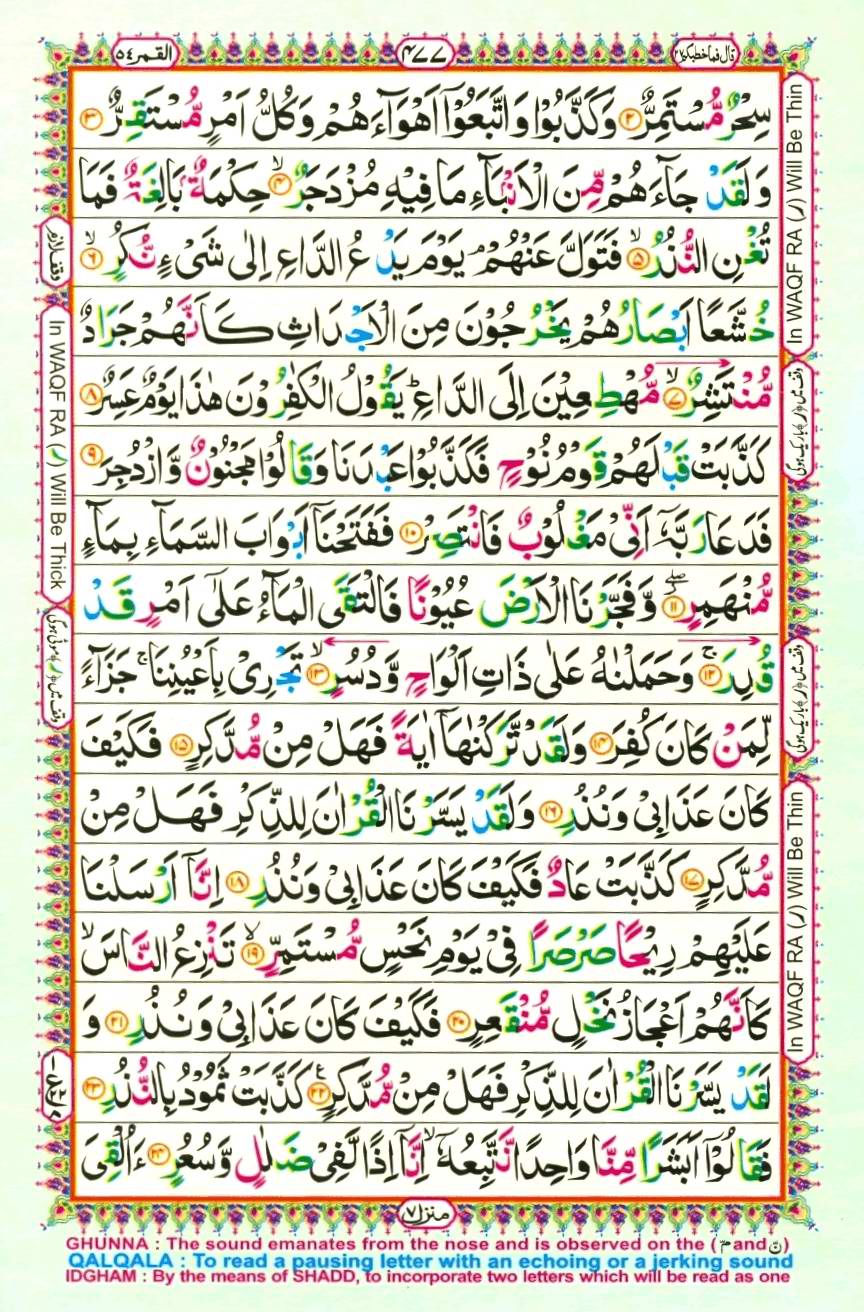 القمر ٥٤
٤٧٧
قال فما خطبكم ٢٧
سِحْرٌ مُّسْتَمِرٌّ ۝٢ وَكَذَّبُوْا وَاتَّبَعُوْٓا اَهْوَآءَهُمْ وَكُلُّ اَمْرٍ مُّسْتَقِرٌّ ۝٣
وَلَقَدْ جَآءَهُمْ مِّنَ الْاَنْۢبَآءِ مَا فِيْهِ مُزْدَجَرٌ ۝٤ ۙ حِكْمَةٌۢ بَالِغَةٌ فَمَا
تُغْنِ النُّذُرُ ۝٥ ۙ فَتَوَلَّ عَنْهُمْ ۘ يَوْمَ يَدْعُ الدَّاعِ اِلٰى شَىْءٍ نُّكُرٍ ۝٦ ۙ
خُشَّعًا اَبْصَارُهُمْ يَخْرُجُوْنَ مِنَ الْاَجْدَاثِ كَاَنَّهُمْ جَرَادٌ
مُّنْتَشِرٌ ۝٧ ۙ مُّهْطِعِيْنَ اِلَى الدَّاعِ ؕ يَقُوْلُ الْكٰفِرُوْنَ هٰذَا يَوْمٌ عَسِرٌ ۝٨
كَذَّبَتْ قَبْلَهُمْ قَوْمُ نُوْحٍ فَكَذَّبُوْا عَبْدَنَا وَقَالُوْا مَجْنُوْنٌ وَّازْدُجِرَ ۝٩
فَدَعَا رَبَّهٗٓ اَنِّىْ مَغْلُوْبٌ فَانْتَصِرْ ۝١٠ فَفَتَحْنَآ اَبْوَابَ السَّمَآءِ بِمَآءٍ
مُّنْهَمِرٍ ۝١١ ۖ وَّفَجَّرْنَا الْاَرْضَ عُيُوْنًا فَالْتَقَى الْمَآءُ عَلٰٓى اَمْرٍ قَدْ
قُدِرَ ۝١٢ ۚ وَحَمَلْنٰهُ عَلٰى ذَاتِ اَلْوَاحٍ وَّدُسُرٍ ۝١٣ ۙ تَجْرِىْ بِاَعْيُنِنَا ۚ جَزَآءً
لِّمَنْ كَانَ كُفِرَ ۝١٤ وَلَقَدْ تَّرَكْنٰهَآ اٰيَةً فَهَلْ مِنْ مُّدَّكِرٍ ۝١٥ فَكَيْفَ
كَانَ عَذَابِىْ وَنُذُرِ ۝١٦ وَلَقَدْ يَسَّرْنَا الْقُرْاٰنَ لِلذِّكْرِ فَهَلْ مِنْ
مُّدَّكِرٍ ۝١٧ كَذَّبَتْ عَادٌ فَكَيْفَ كَانَ عَذَابِىْ وَنُذُرِ ۝١٨ اِنَّآ اَرْسَلْنَا
عَلَيْهِمْ رِيْحًا صَرْصَرًا فِىْ يَوْمِ نَحْسٍ مُّسْتَمِرٍّ ۝١٩ ۙ تَنْزِعُ النَّاسَ ۙ
كَاَنَّهُمْ اَعْجَازُ نَخْلٍ مُّنْقَعِرٍ ۝٢٠ فَكَيْفَ كَانَ عَذَابِىْ وَنُذُرِ ۝٢١ وَ
لَقَدْ يَسَّرْنَا الْقُرْاٰنَ لِلذِّكْرِ فَهَلْ مِنْ مُّدَّكِرٍ ۝٢٢ ع كَذَّبَتْ ثَمُوْدُ بِالنُّذُرِ ۝٢٣
فَقَالُوْٓا اَبَشَرًا مِّنَّا وَاحِدًا نَّتَّبِعُهٗٓ ۙ اِنَّآ اِذًا لَّفِىْ ضَلٰلٍ وَّسُعُرٍ ۝٢٤ ءَاُلْقِىَ
In WAQF RA (ر) Will Be Thin
وقف میں (ر) باریک ہوگی
وقف میں (ر) باریک ہوگی
In WAQF RA (ر) Will Be Thin
وقف لازم
In WAQF RA (ر) Will Be Thick
وقف میں (ر) موٹی ہوگی
منزل ٧
GHUNNA : The sound emanates from the nose and is observed on the (مّ and نّ)
QALQALA : To read a pausing letter with an echoing or a jerking sound
IDGHAM : By the means of SHADD, to incorporate two letters which will be read as one